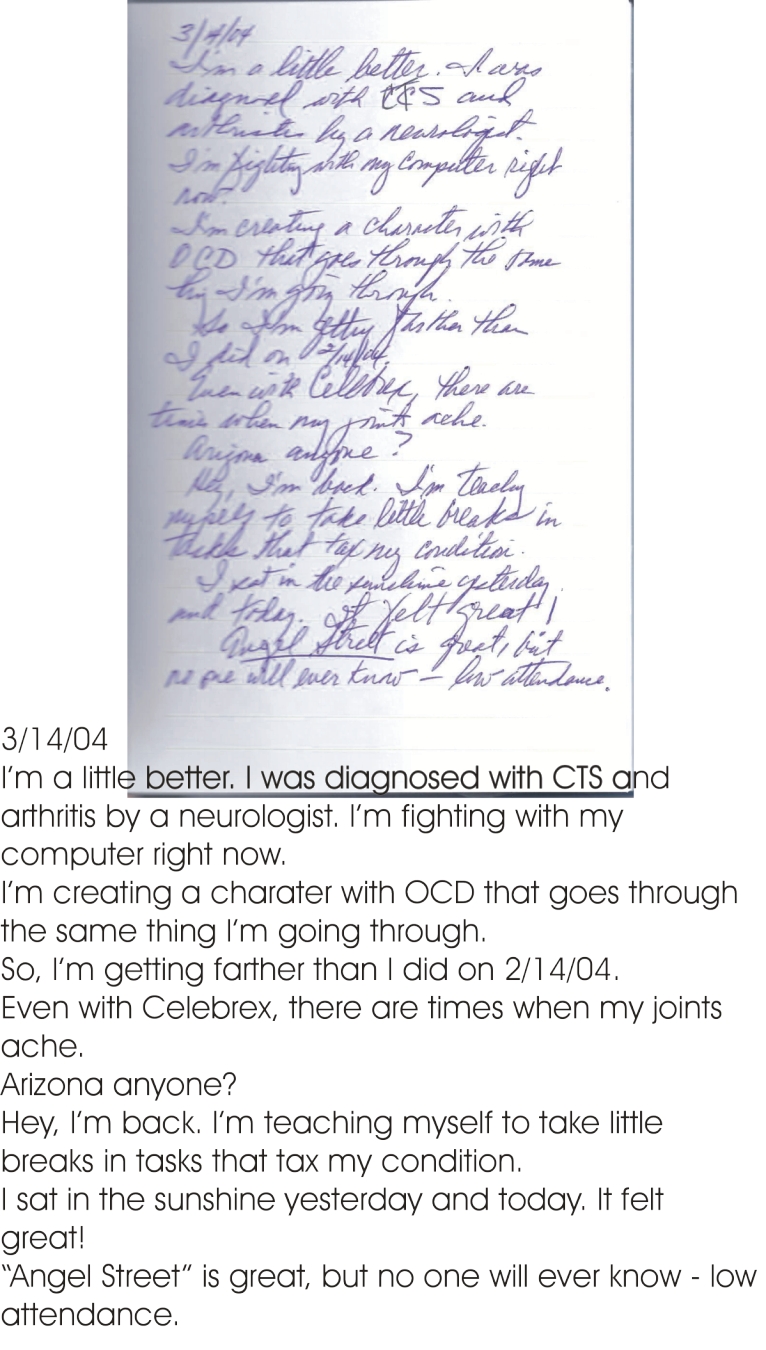 3/4/04
I'm a little better. I was
diagnosed with CTS and
arthritis by a neurologist.
I'm fighting with my computer right
now.
I'm creating a character with
OCD that goes through the same
thing I'm going through.
So I'm getting farther than
I did on 2/14/04.
Even with Celebrex, there are
times when my joints ache.
Arizona anyone?
Hey, I'm back. I'm teaching
myself to take little breaks in
tasks that tax my condition.
I sat in the sunshine yesterday
and today. It felt great!
Angel Street is great, but
no one will ever know – low attendance.
3/14/04
I’m a little better. I was diagnosed with CTS and
arthritis by a neurologist. I’m fighting with my
computer right now.
I’m creating a charater with OCD that goes through
the same thing I’m going through.
So, I’m getting farther than I did on 2/14/04.
Even with Celebrex, there are times when my joints
ache.
Arizona anyone?
Hey, I’m back. I’m teaching myself to take little
breaks in tasks that tax my condition.
I sat in the sunshine yesterday and today. It felt
great!
“Angel Street” is great, but no one will ever know - low
attendance.